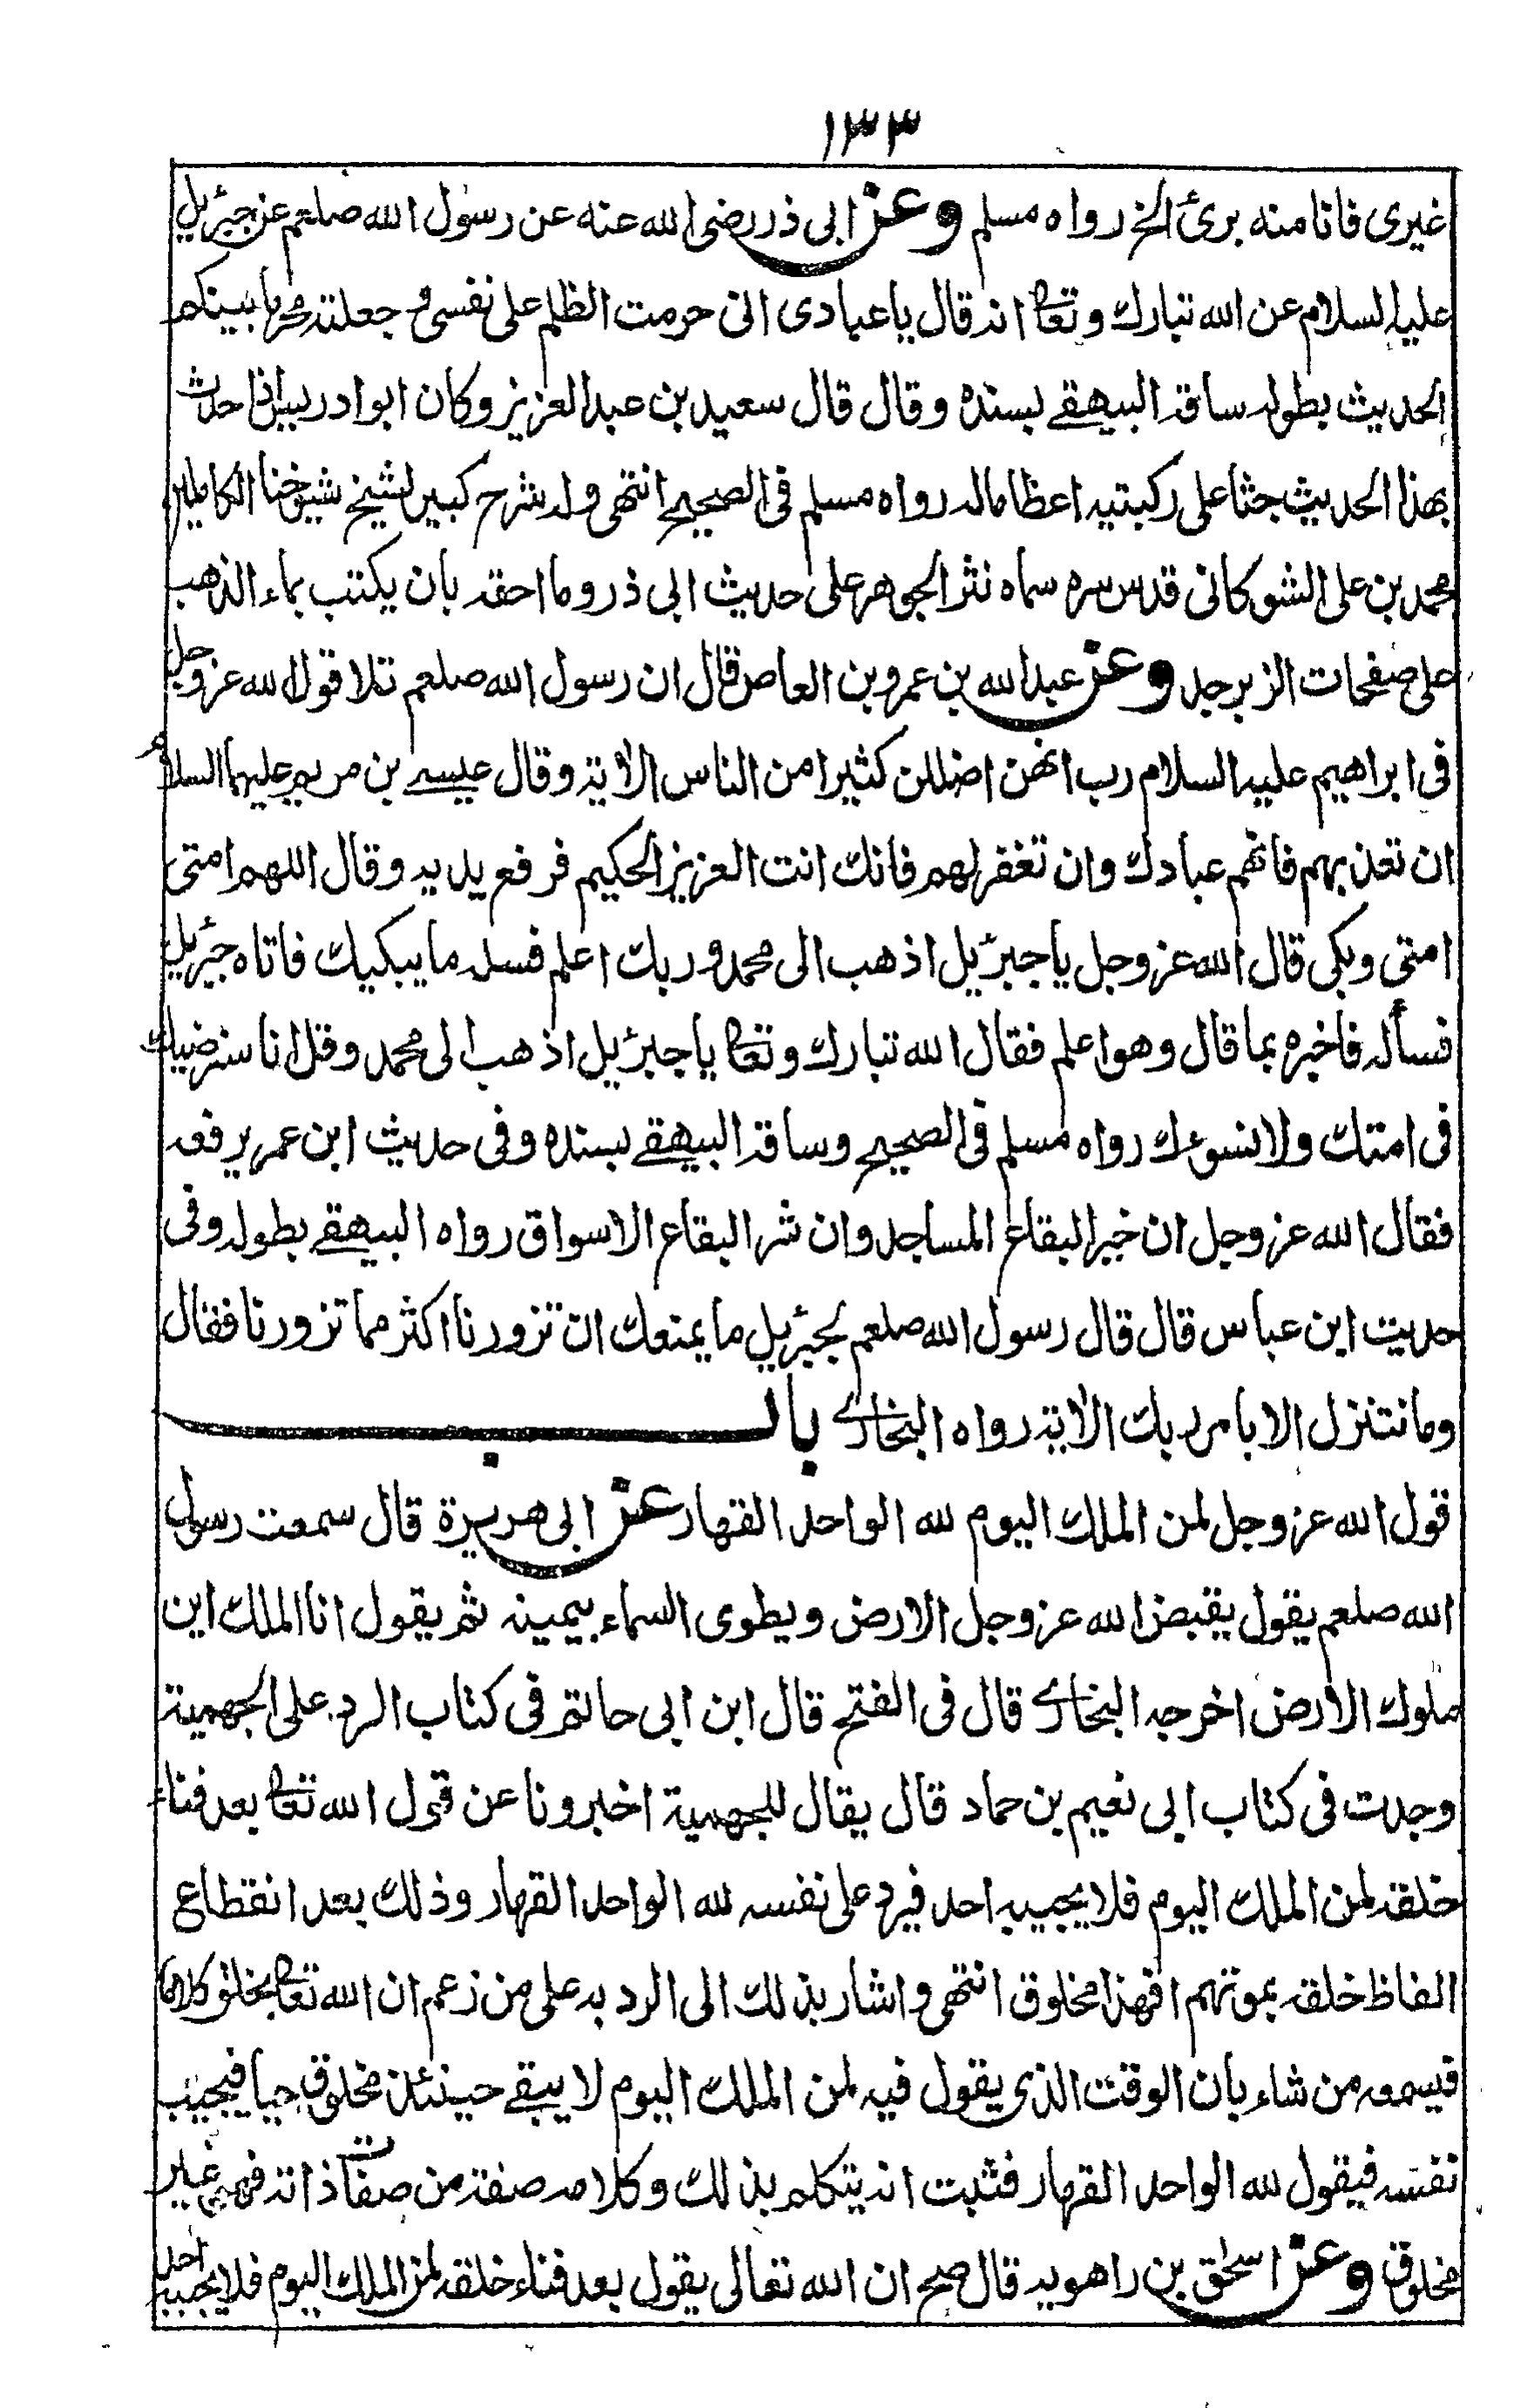 ١٣٣
غيرى فانا منه برئ الخ رواه مسلم وعن ابى ذر رضى الله عنه عن رسول الله صلعم عن جبرئيل
عليه السلام عن الله تبارك وتعا انه قال يا عبادى انى حرمت الظلم على نفسى وجعلته محرما بينكم
الحديث بطوله ساقه البيهقے بسنده وقال قال سعيد بن عبد العزيز وكان ابو ادريس اذا حدث
بهذا الحديث جثا على ركبتيه اعظاما له رواه مسلم فى الصحيح انتهى وله شرح كبير لشيخ شيوخنا الكاملين
محمد بن على الشوكانى قدس سره سماه نثر الجوهر على حديث ابى ذر وما احقه بان يكتب بماء الذهب
على صفحات الزبرجد وعن عبد الله بن عمرو بن العاص قال ان رسول الله صلعم تلا قول الله عز وجل
فى ابراهيم عليه السلام رب انهن اضللن كثيرا من الناس الاية وقال عيسے بن مريم عليهما السلام
ان تعذبهم فانهم عبادك وان تغفر لهم فانك انت العزيز الحكيم فرفع يديه وقال اللهم امتى
امتى وبكى قال الله عز وجل يا جبرئيل اذهب الى محمد وربك اعلم فسله ما يبكيك فاتاه جبرئيل
فسأله فاخبره بما قال وهو اعلم فقال الله تبارك وتعا يا جبرئيل اذهب الى محمد وقل انا سنرضيك
فى امتك ولا نسوءك رواه مسلم فى الصحيح وساقه البيهقے بسنده وفى حديث ابن عمر يرفعه
فقال الله عز وجل ان خير البقاع المساجد وان شر البقاع الاسواق رواه البيهقے بطوله وفى
حديث ابن عباس قال قال رسول الله صلعم لجبرئيل ما يمنعك ان تزورنا اكثر مما تزورنا فقال
وما نتنزل الا بامر ربك الاية رواه البخارے باب
قول الله عز وجل لمن الملك اليوم لله الواحد القهار عن ابى هريرة قال سمعت رسول
الله صلعم يقول يقبض الله عز وجل الارض ويطوى السماء بيمينه ثم يقول انا الملك اين
ملوك الارض اخرجه البخارے قال فى الفتح قال ابن ابى حاتم فى كتاب الرد على الجهمية
وجدت فى كتاب ابى نعيم بن حماد قال يقال للجهمية اخبرونا عن قول الله تعا بعد فناء
خلقه لمن الملك اليوم فلا يجيبه احد فيرد على نفسه لله الواحد القهار وذلك بعد انقطاع
الفاظ خلقه بموتهم افهذا مخلوق انتهى واشار بذلك الى الرد به على من زعم ان الله تعا يخلق كلاما
فيسمعه من شاء بان الوقت الذى يقول فيه لمن الملك اليوم لا يبقے حينئذ مخلوق حيا فيجيب
نفسه فيقول لله الواحد القهار فثبت انه يتكلم بذلك وكلامه صفة من صفات ذاته فهى غير
مخلوق وعن اسحق بن راهويه قال صح ان الله تعالى يقول بعد فناء خلقه لمن الملك اليوم فلا يجيبه احد